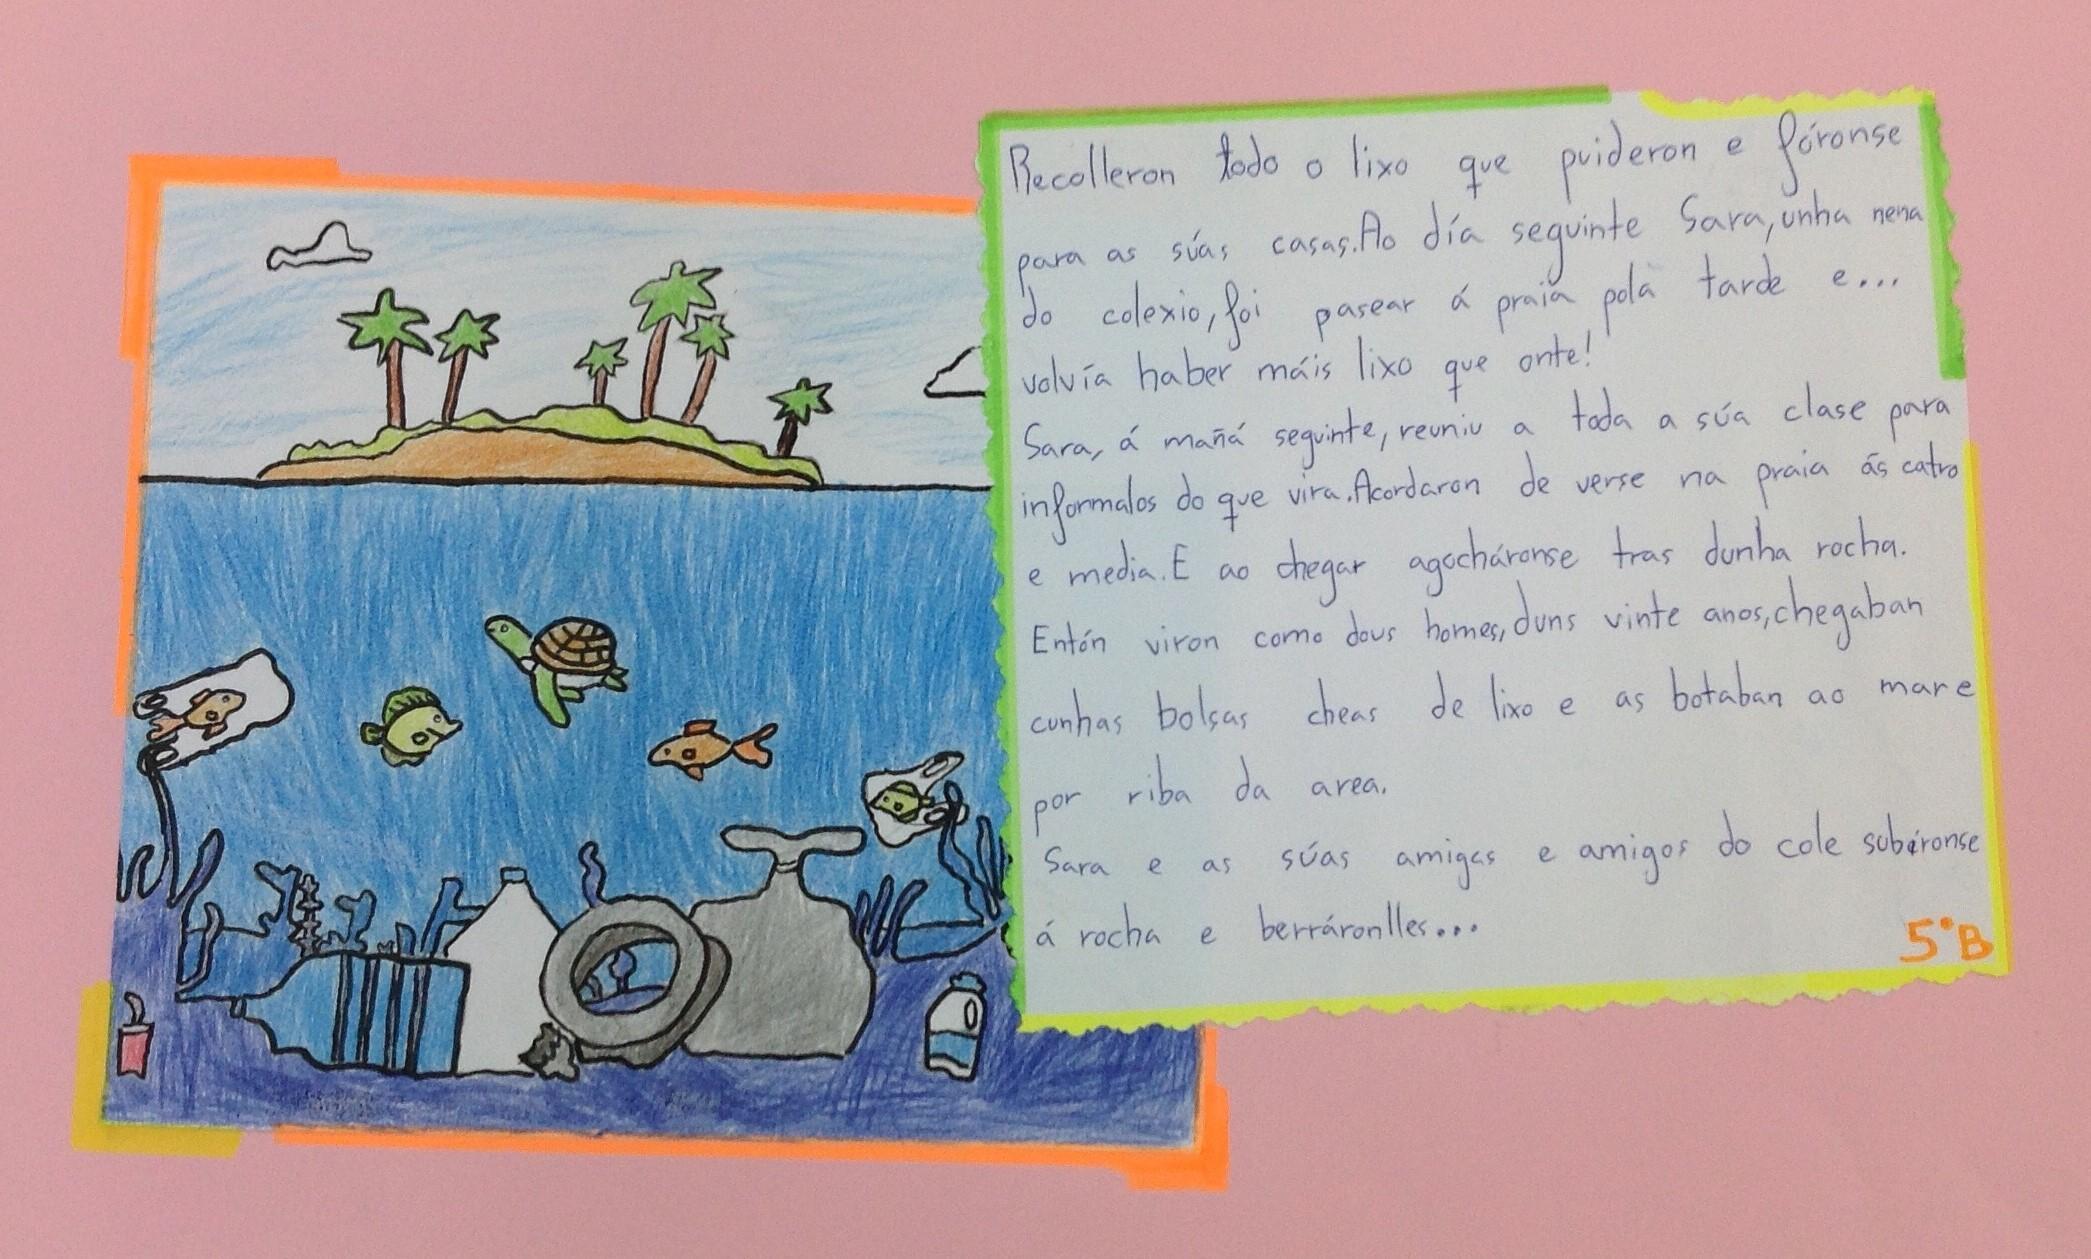 Recolleron todo o lixo que puideron e fóronse
para as súas casas. Ao día seguinte Sara, unha nena
do colexio, foi pasear á praia pola tarde e...
volvía haber máis lixo que onte!
Sara, á mañá seguinte, reuniu a toda a súa clase para
informalos do que vira. Acordaron de verse na praia ás catro
e media. E ao chegar agocháronse tras dunha rocha.
Entón viron como dous homes, duns vinte anos, chegaban
cunhas bolsas cheas de lixo e as botaban ao mar e
por riba da area.
Sara e as súas amigas e amigos do cole subíronse
á rocha e berráronlles...
5ºB